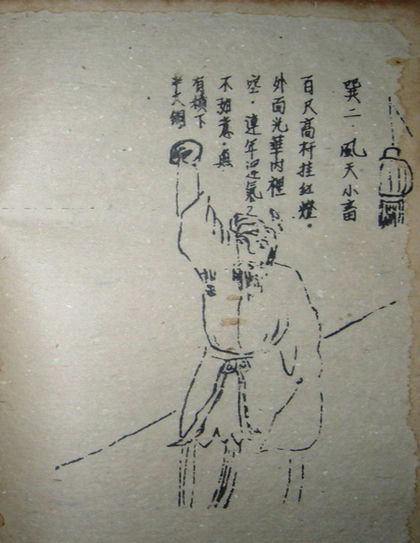 巽二 風天小畜
百尺高杆挂紅燈。
外面光華内裡
空。連年 氣
不 意。魚
有 下
半天網